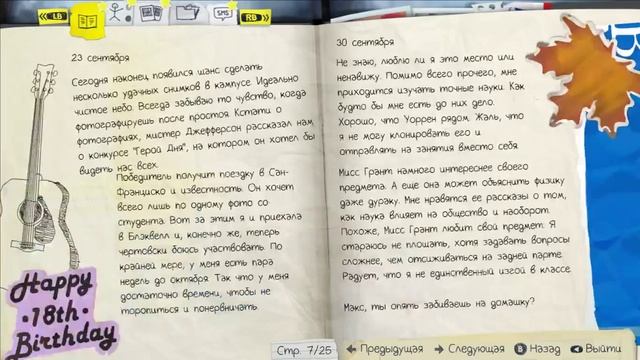 LB
SMS
RB
23 сентября
Сегодня наконец появился шанс сделать
несколько удачных снимков в кампусе. Идеально
чистое небо. Всегда забываю то чувство, когда
фотографируешь после простоя. Кстати о
фотографиях, мистер Джефферсон рассказал нам
о конкурсе "Герой Дня", на котором он хотел бы
видеть нас всех.
Победитель получит поездку в Сан-
Франциско и известность. Он хочет
всего лишь по одному фото со
студента. Вот за этим я и приехала
в Блэквелл и, конечно же, теперь
чертовски боюсь участвовать. По
крайней мере, у меня есть пара
недель до октября. Так что у меня
достаточно времени, чтобы не
торопиться и понервничать.
Happy
•18th•
Birthday
30 сентября
Не знаю, люблю ли я это место или
ненавижу. Помимо всего прочего, мне
приходится изучать точные науки. Как
будто бы мне есть до них дело.
Хорошо, что Уоррен рядом. Жаль, что
я не могу клонировать его и
отправлять на занятия вместо себя.
Мисс Грант намного интереснее своего
предмета. А еще она может объяснить физику
даже дураку. Мне нравятся ее рассказы о том,
как наука влияет на общество и наоборот.
Похоже, Мисс Грант любит свой предмет. Я
стараюсь не плошать, хотя задавать вопросы
сложнее, чем отсиживаться на задней парте.
Радует, что я не единственный изгой в классе.
Макс, ты опять забиваешь на домашку?
Стр. 7/25
Предыдущая
Следующая
B Назад
Выйти